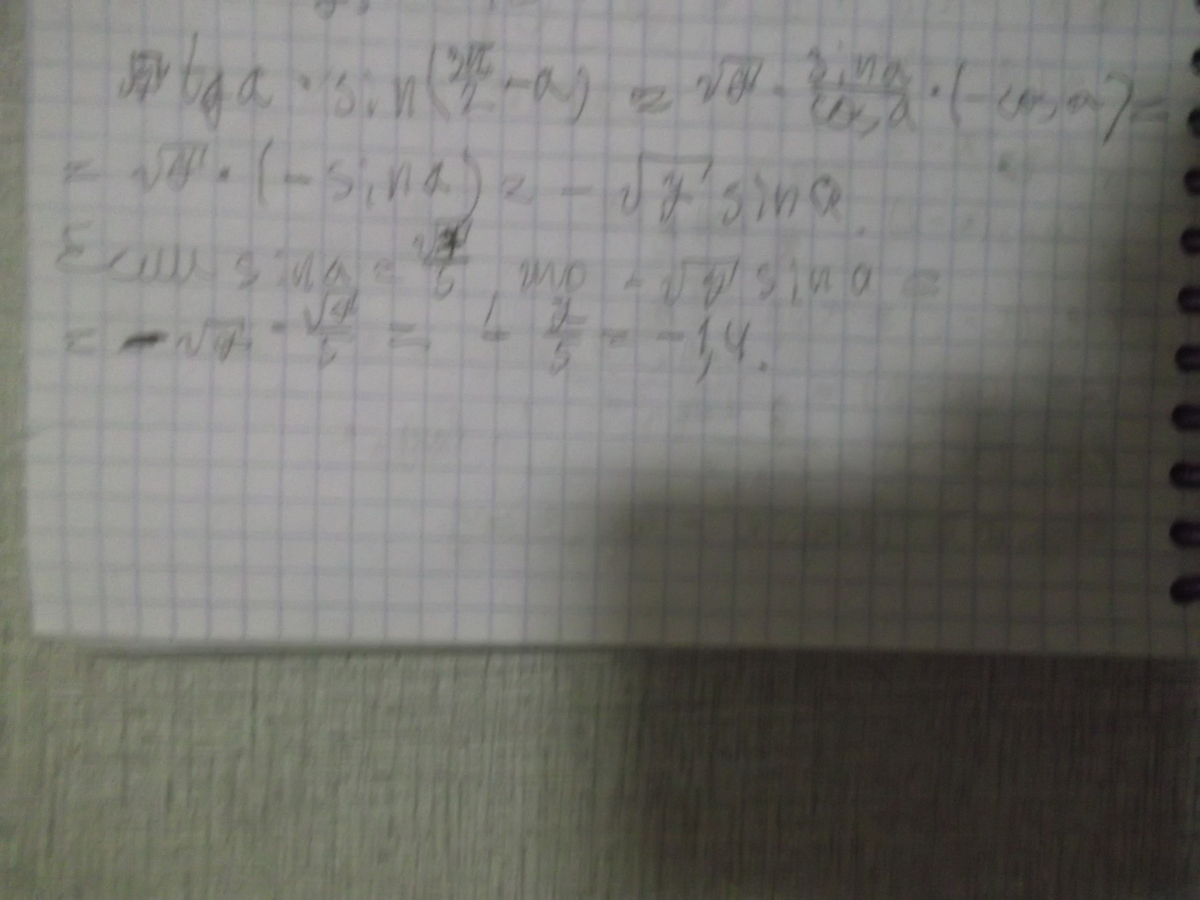 √7 tg a · sin(3π/2 - a) = √7 · sin a/cos a · (-cos a) =
= √7 · (-sin a) = - √7 sin a.
Если sin a = √7/5, то - √7 sin a =
= - √7 · √7/5 = - 7/5 = -1,4.